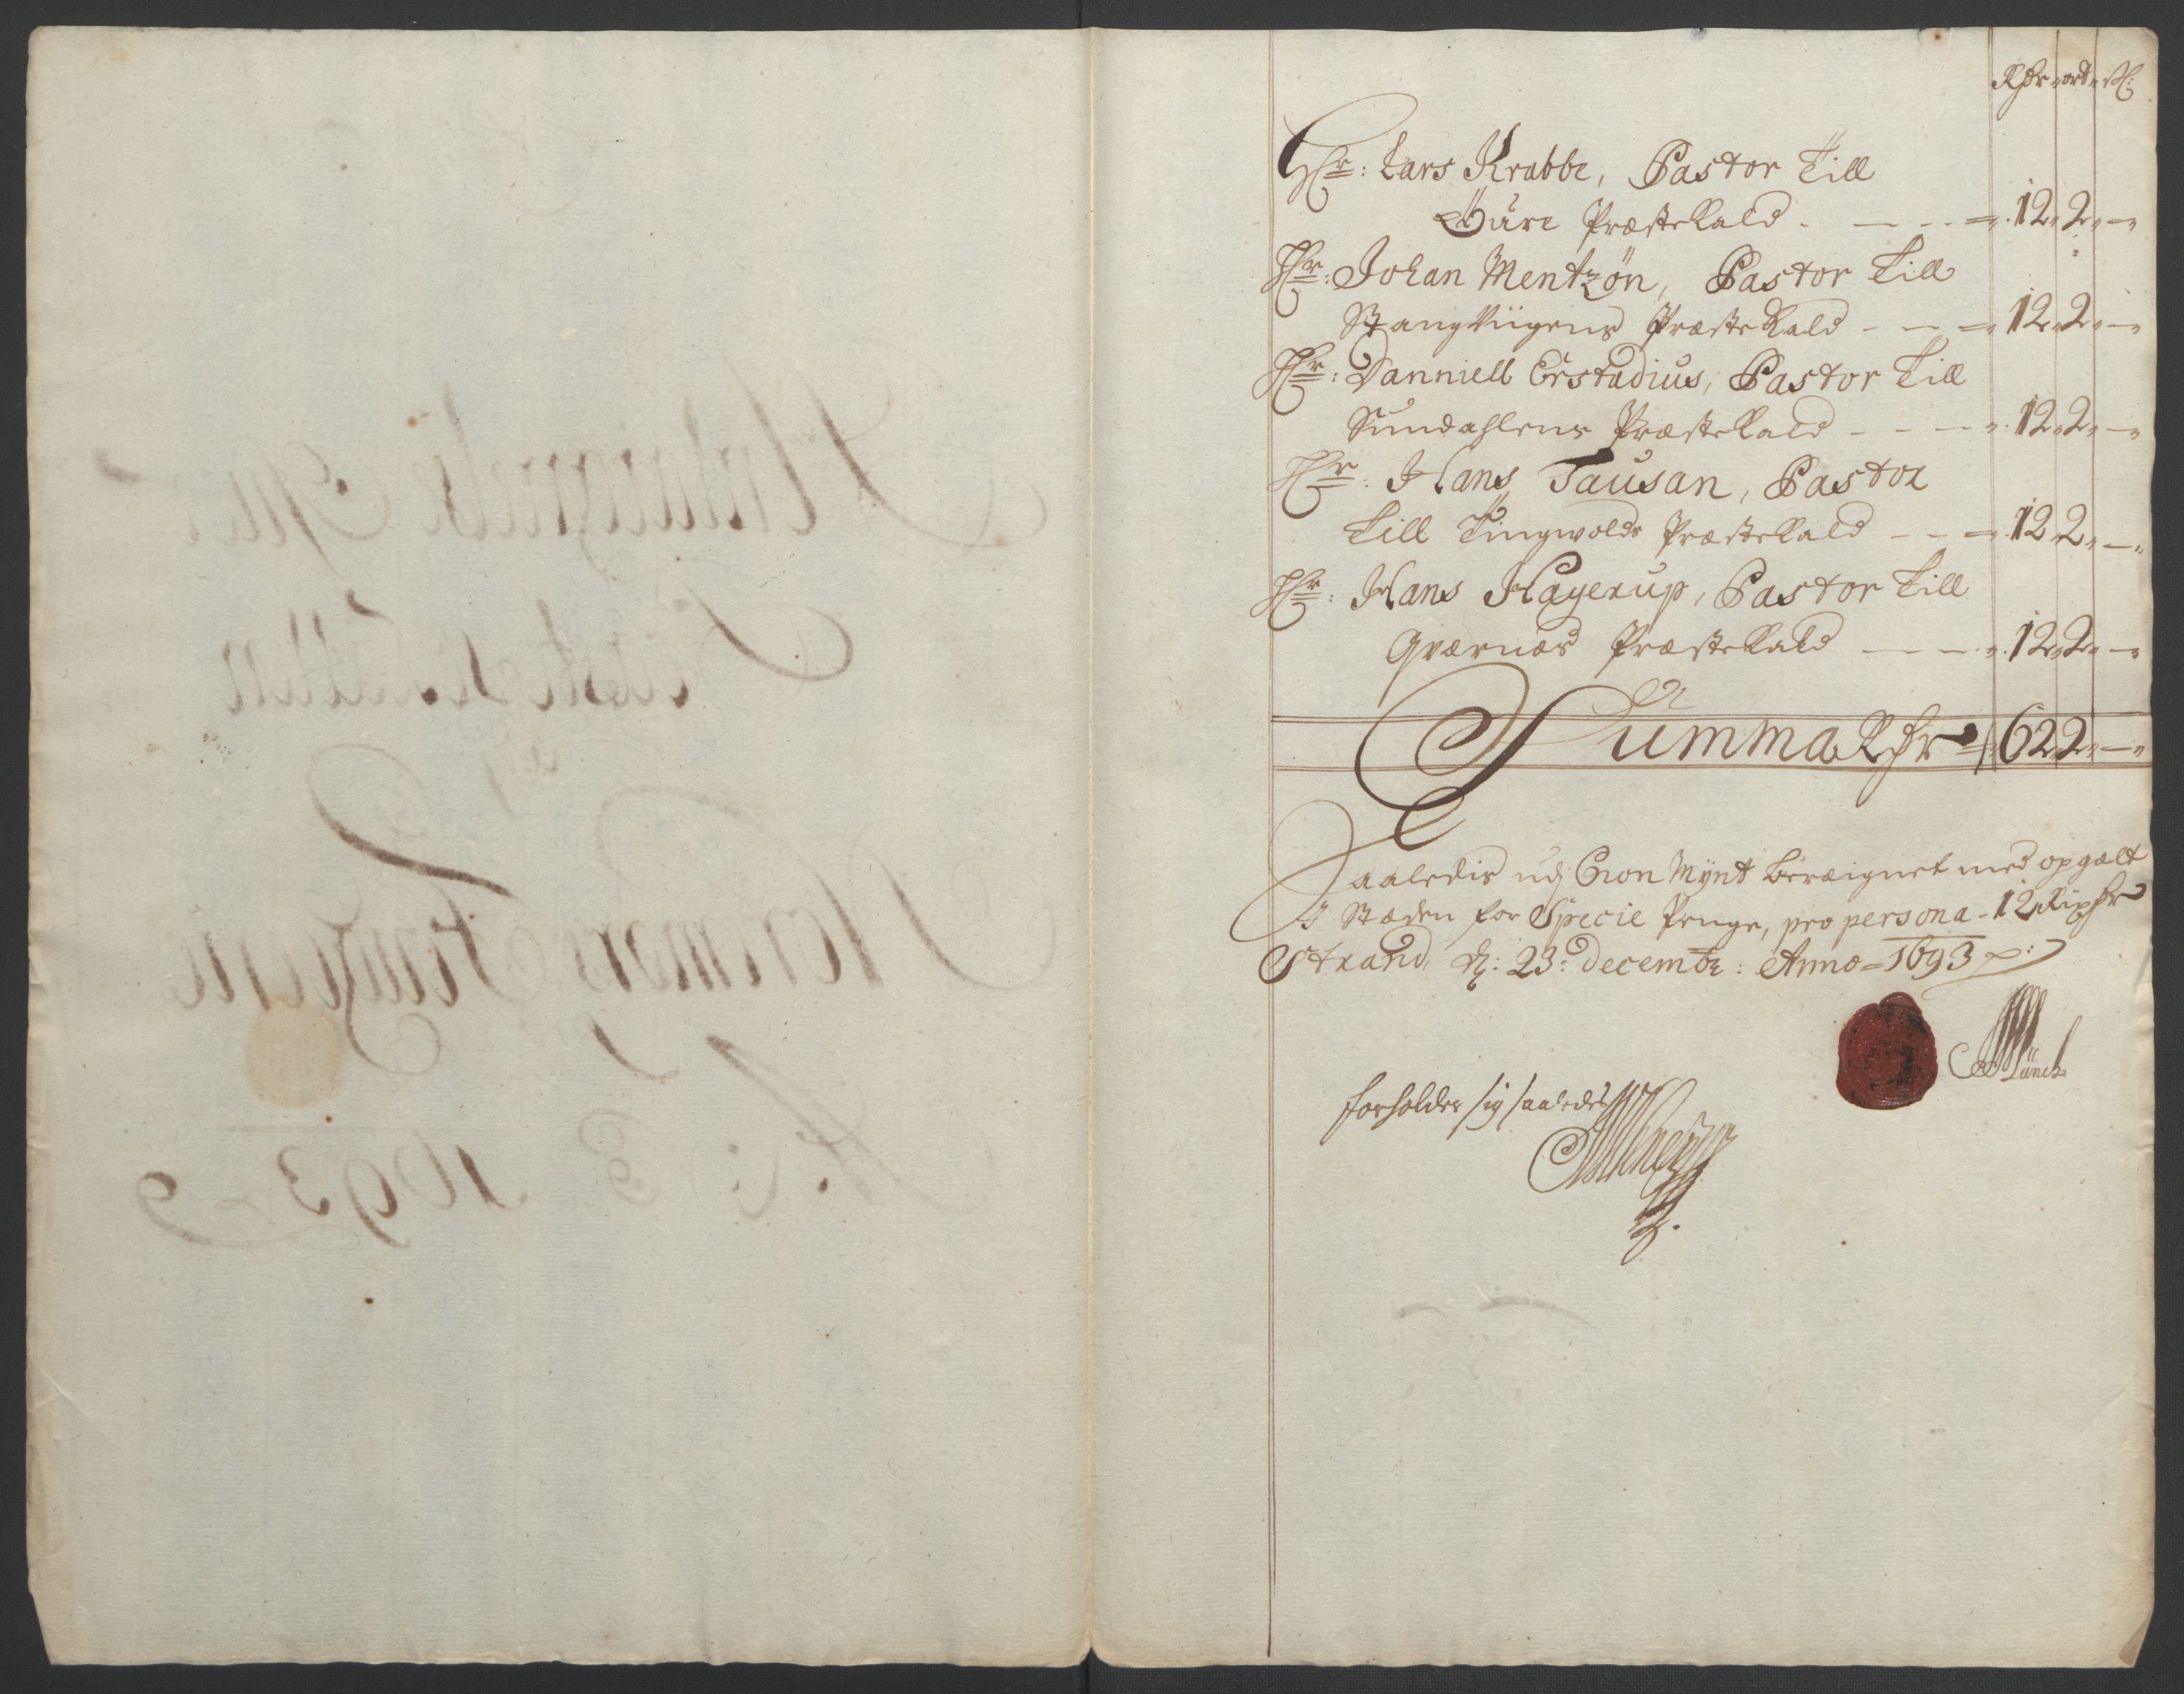 Rdr ort ß:
Hr: Lars Krabbe, Pastor Till
Øure Præstekald - - - 12 2 -
Hr: Johan Mentzøn, Pastor Till
Stangviigens Præstekald - - 12 2 -
Hr: Danniell Erstadius, Pastor Till
Sundahlens Præstekald - - - 12 2 -
Hr: Hans Tausan, Pastor
Till Tingwolds Præstekald - - 12 2 -
Hr: Hans Hagerup, Pastor Till
Qværnæs Præstekald - - 12 2 -
Summa Rdr 62 2 -
Saaledis udj Cron Mynt beræignet med opgælt
I Stæden for Specie Penge, pro persona - 12 Rixdr
Strand, d: 23: decembr: Anno - 1693 p:
Münch
forholder sig saaledes